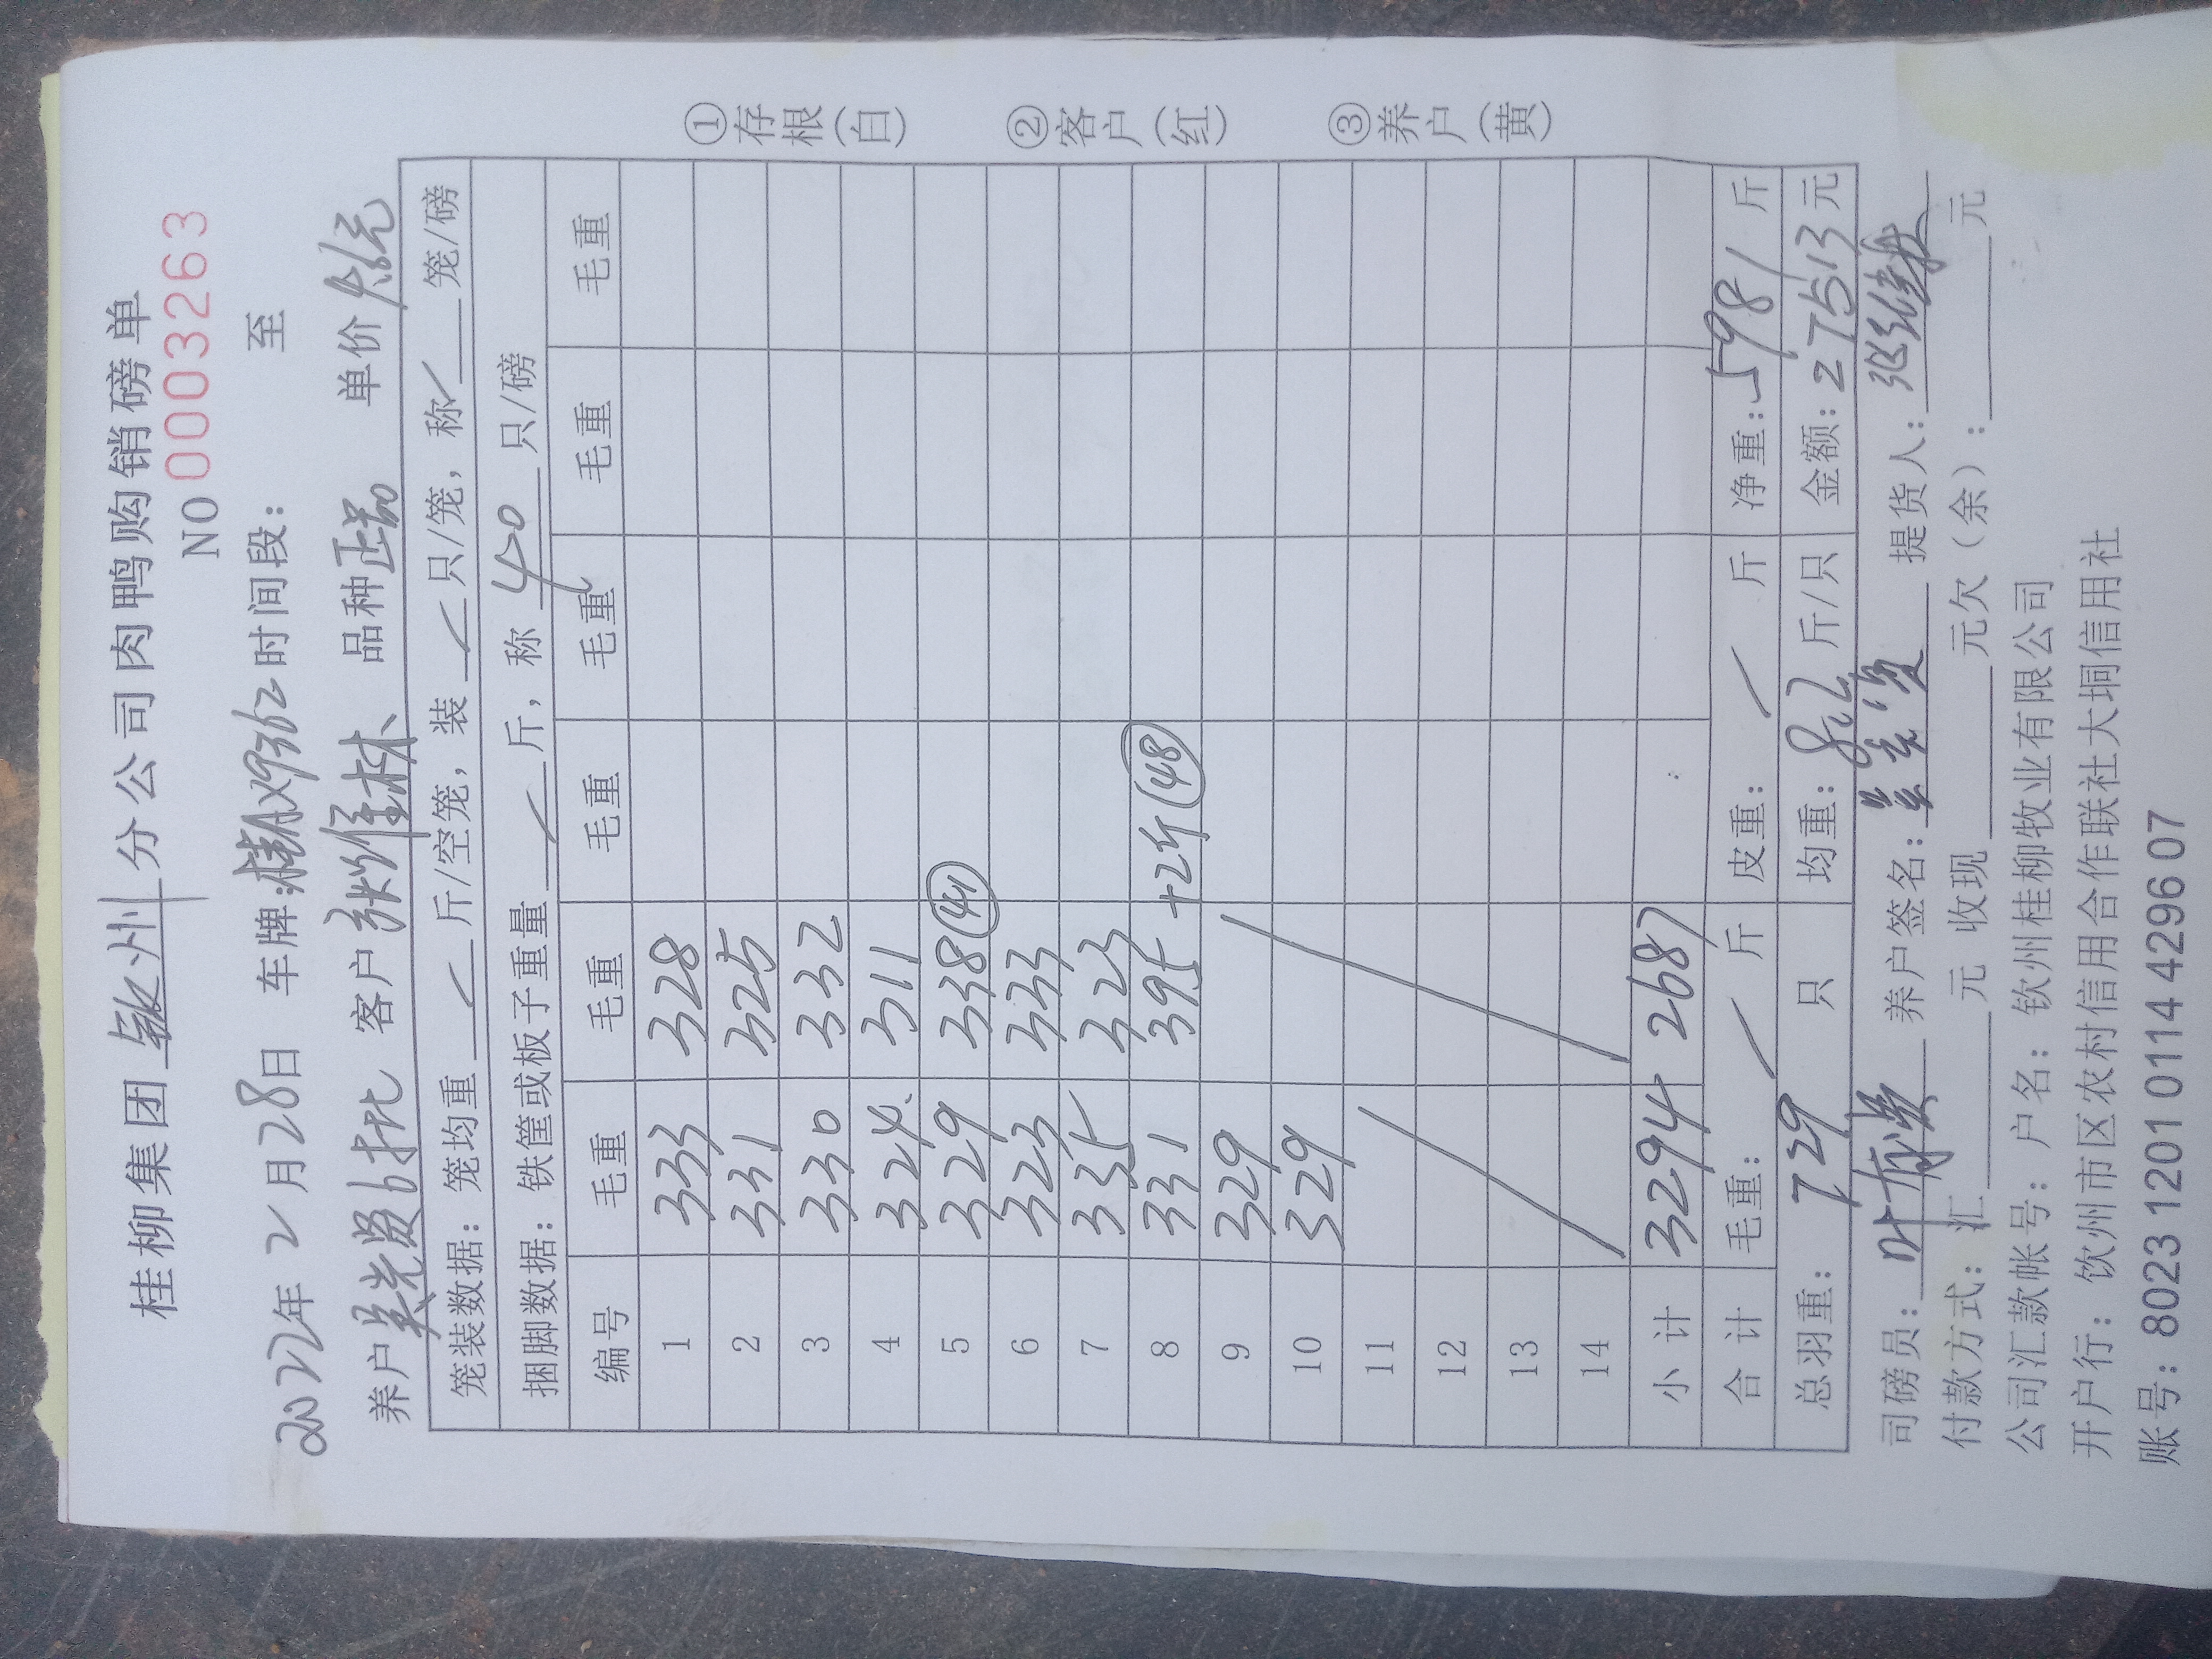 桂柳集团 钦州 分公司肉鸭购销磅单
NO 0003263
2022年 2月28日 车牌: X9362 时间段: 至
养户 吴光 6批 客户 张维林 品种 正品 单价 4.6元
笼装数据: 笼均重 ✓ 斤/空笼, 装 ✓ 只/笼, 称 ✓ 笼/磅
捆脚数据: 铁筐或板子重量 ✓ 斤, 称 40 只/磅
编号 毛重 毛重 毛重 毛重 毛重 毛重
1 333 328
2 331 325
3 330 332
4 324 311
5 329 338 (41)
6 323 333
7 335 323
8 331 395 +2斤 (48)
9 329
10 329
11
12
13
14
小计 3294 2687
合计 毛重: 斤 皮重: 斤 净重: 5981 斤
总羽重: 729 只 均重: 8.2 斤/只 金额: 27513 元
司磅员: 叶 养户签名: 提货人: 张维林
付款方式: 汇 元 收现 元欠(余): 元
公司汇款帐号: 户名: 钦州桂柳牧业有限公司
开户行: 钦州市区农村信用合作联社大垌信用社
账号: 8023 1201 0114 4296 07
①存根(白) ②客户(红) ③养户(黄)